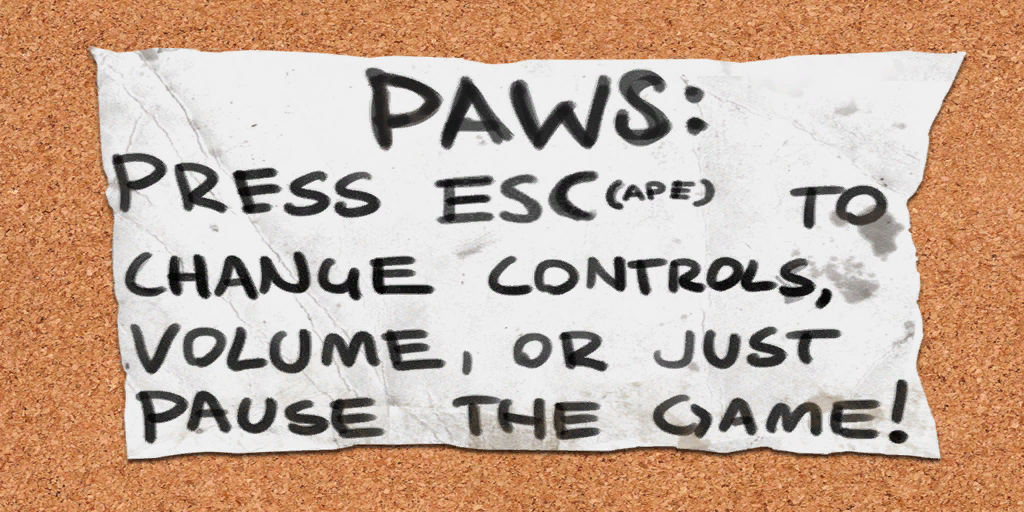 PAWS:
PRESS ESC(APE) TO
CHANGE CONTROLS,
VOLUME, OR JUST
PAUSE THE GAME!